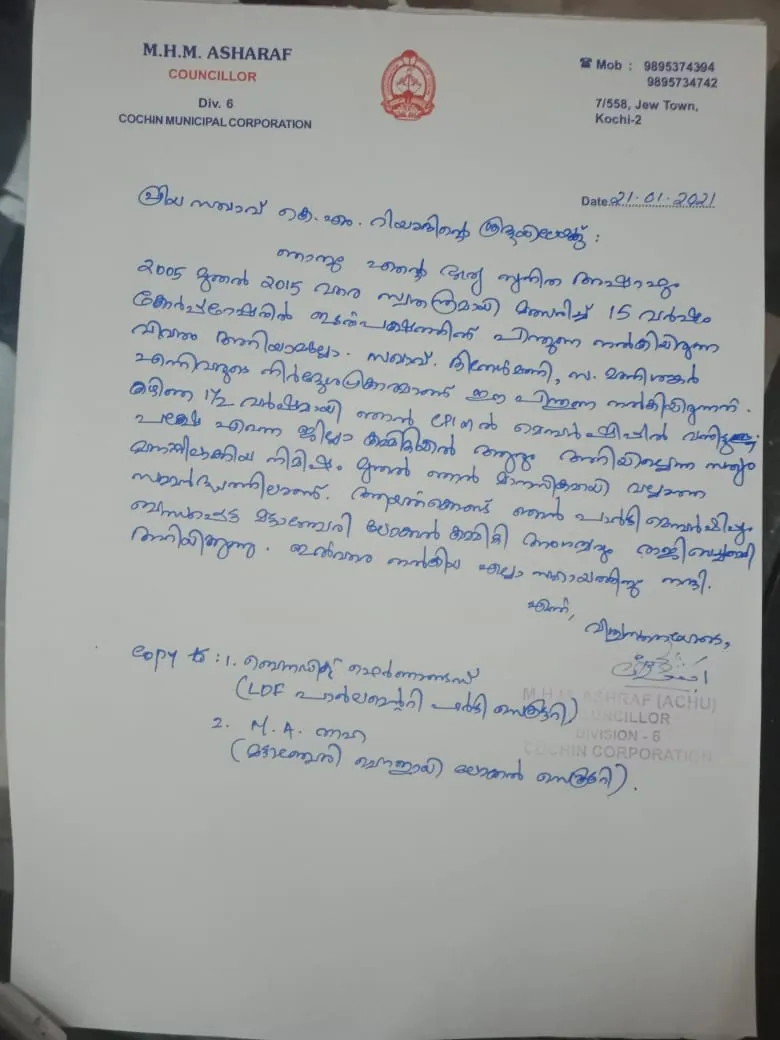 M.H.M. ASHARAF
COUNCILLOR
Div. 6
COCHIN MUNICIPAL CORPORATION
Mob : 9895374394
9895734742
7/558, Jew Town,
Kochi-2
Date 21.01.2021
പ്രിയ സഖാവ് കെ.എം. റിയാദിന്റെ ശ്രദ്ധയിലേയ്ക്ക് :
ഞാനും എന്റെ ഭാര്യ സുനിത അഷറഫും
2005 മുതൽ 2015 വരെ സ്വതന്ത്രമായി മത്സരിച്ച് 15 വർഷം
കോർപ്പറേഷനിൽ ഇടതുപക്ഷത്തിന് പിന്തുണ നൽകിയിരുന്ന
വിവരം അറിയാമല്ലോ. സഖാവ്. ദിനേശ്മണി, സ. മണിശങ്കർ
എന്നിവരുടെ നിർദ്ദേശപ്രകാരമാണ് ഈ പിന്തുണ നൽകിയിരുന്നത്.
കഴിഞ്ഞ 1½ വർഷമായി ഞാൻ CPIMൽ മെമ്പർഷിപ്പിൽ വന്നിട്ടും
പക്ഷേ എന്നെ ജില്ലാ കമ്മിറ്റിയിൽ ആരും അറിയില്ലെന്ന സത്യം
മനസ്സിലാക്കിയ നിമിഷം മുതൽ ഞാൻ മാനസികമായി വല്ലാത്ത
സമ്മർദ്ദത്തിലാണ്. ആയതുകൊണ്ട് ഞാൻ പാർട്ടി മെമ്പർഷിപ്പും
ബന്ധപ്പെട്ട മട്ടാഞ്ചേരി ലോക്കൽ കമ്മിറ്റി അംഗത്വവും രാജിവെച്ചതായി
അറിയിക്കുന്നു. ഇതുവരെ നൽകിയ എല്ലാ സഹായത്തിനും നന്ദി.
എന്ന്,
വിശ്വസ്തതയോടെ,
Copy to : 1. ബെനഡിക്ട് ഫെർണാണ്ടസ്
(LDF പാർലമെന്ററി പാർട്ടി സെക്രട്ടറി)
2. M.A. താഹ
(മട്ടാഞ്ചേരി ലോക്കൽ സെക്രട്ടറി).
M.H.M. ASHRAF (ACHU)
COUNCILLOR
DIVISION - 6
COCHIN CORPORATION